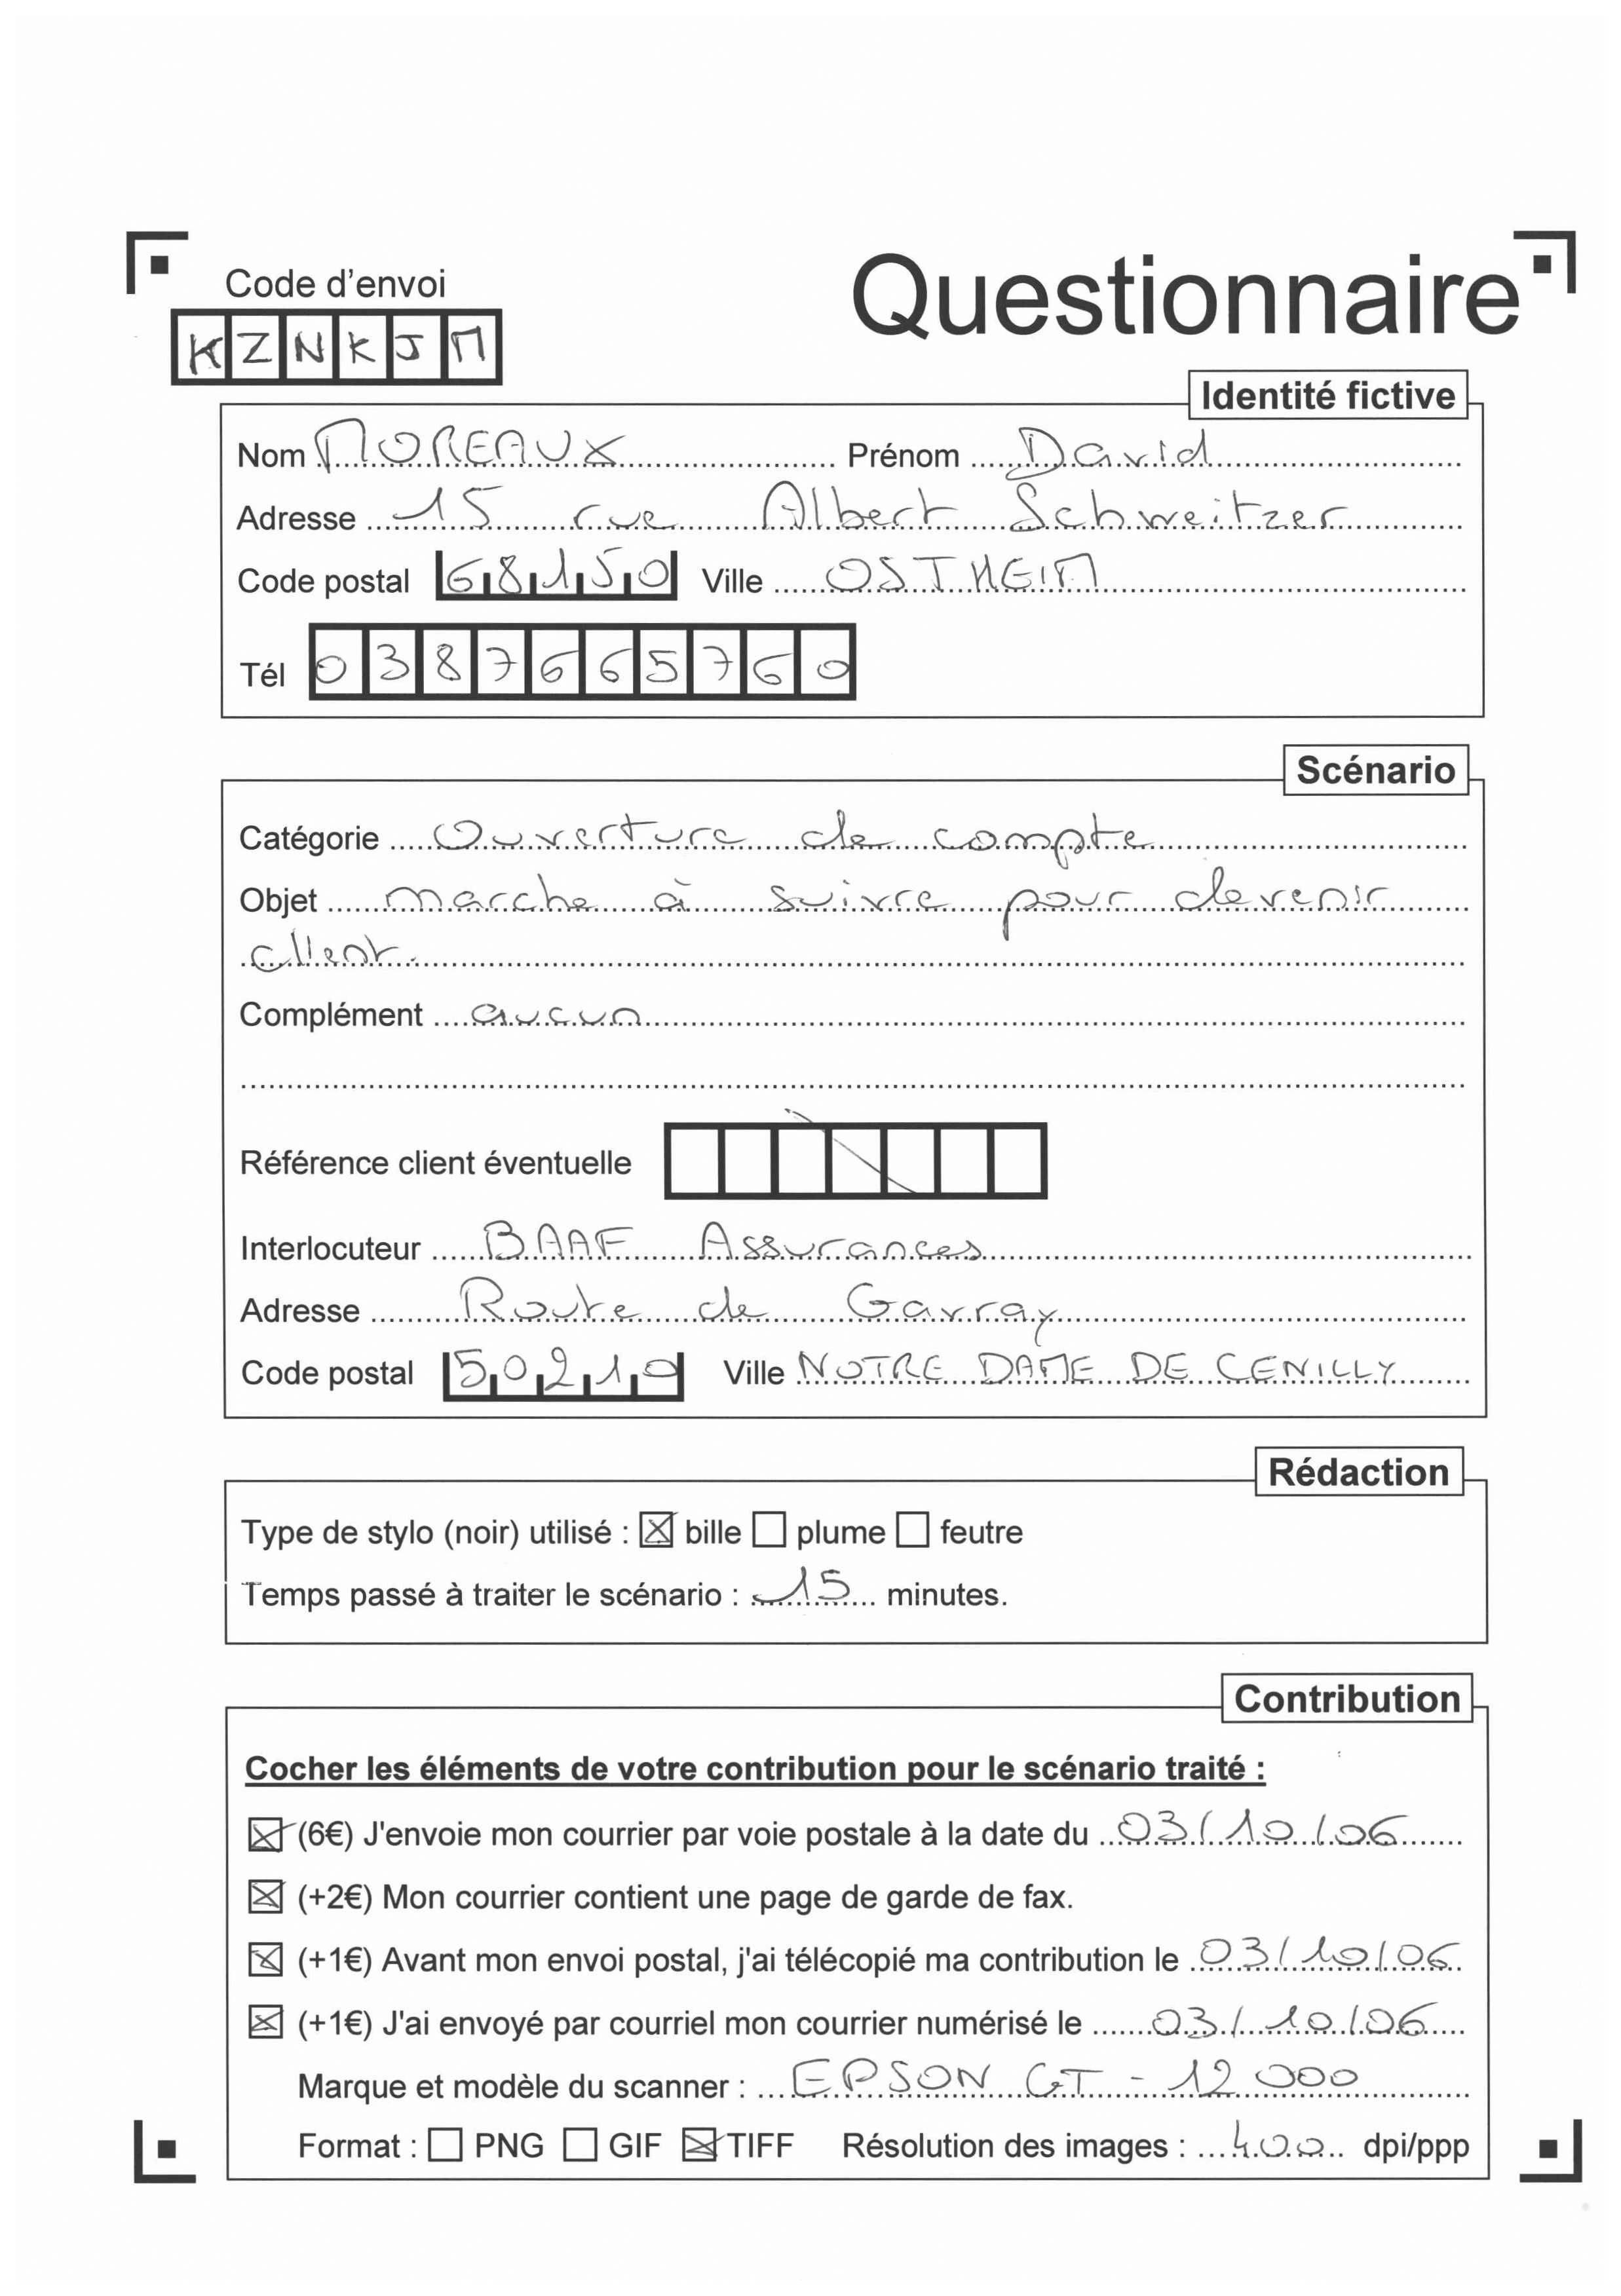 Code d'envoi
Questionnaire
KZNKJM
Identité fictive
Nom MOREAUX Prénom David
Adresse 15 rue Albert Schweitzer
Code postal 68150 Ville OSTHEIM
Tél 0387665760
Scénario
Catégorie Ouverture de compte
Objet marche à suivre pour devenir
client.
Complément aucun
Référence client éventuelle
Interlocuteur BAAF Assurances
Adresse Route de Gavray
Code postal 50210 Ville NOTRE DAME DE CENILLY
Rédaction
Type de stylo (noir) utilisé : ☒ bille ☐ plume ☐ feutre
Temps passé à traiter le scénario : 15 minutes.
Contribution
Cocher les éléments de votre contribution pour le scénario traité :
☒ (6€) J'envoie mon courrier par voie postale à la date du 03/10/06
☒ (+2€) Mon courrier contient une page de garde de fax.
☒ (+1€) Avant mon envoi postal, j'ai télécopié ma contribution le 03/10/06
☒ (+1€) J'ai envoyé par courriel mon courrier numérisé le 03/10/06
Marque et modèle du scanner : EPSON GT - 12 000
Format : ☐ PNG ☐ GIF ☒ TIFF Résolution des images : 400 dpi/ppp